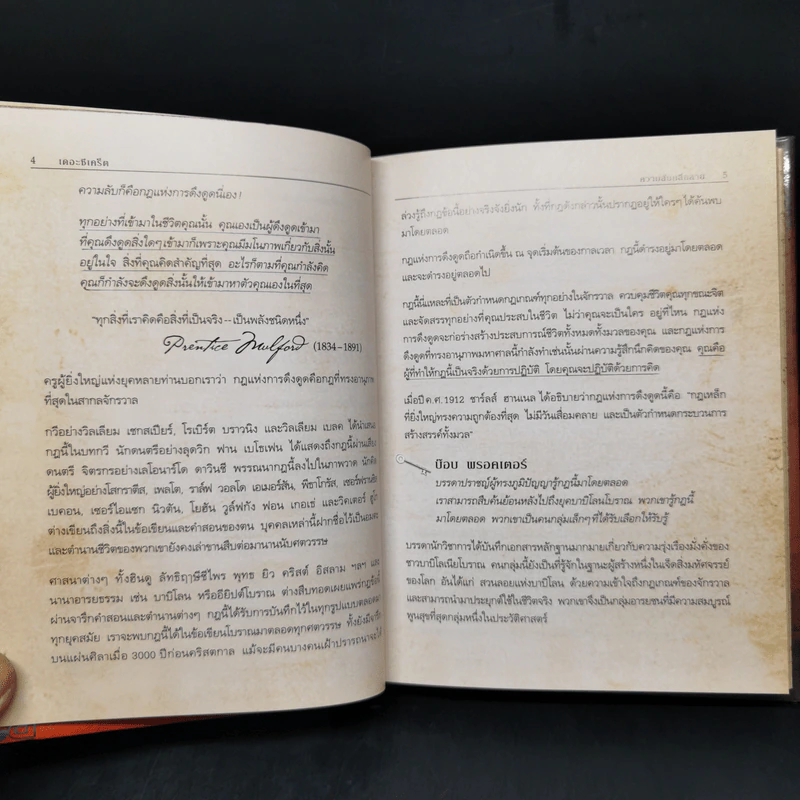 4 เดอะซีเคร็ต
ความลับก็คือกฎแห่งการดึงดูดนี่เอง!
ทุกอย่างที่เข้ามาในชีวิตคุณนั้น คุณเองเป็นผู้ดึงดูดเข้ามา
ที่คุณดึงดูดสิ่งใดๆ เข้ามาก็เพราะคุณมีมโนภาพเกี่ยวกับสิ่งนั้น
อยู่ในใจ สิ่งที่คุณคิดสำคัญที่สุด อะไรก็ตามที่คุณกำลังคิด
คุณก็กำลังจะดึงดูดสิ่งนั้นให้เข้ามาหาตัวคุณเองในที่สุด
"ทุกสิ่งที่เราคิดคือสิ่งที่เป็นจริง--เป็นพลังชนิดหนึ่ง"
Prentice Mulford (1834-1891)
ครูผู้ยิ่งใหญ่แห่งยุคหลายท่านบอกเราว่า กฎแห่งการดึงดูดคือกฎที่ทรงอานุภาพ
ที่สุดในสากลจักรวาล
กวีอย่างวิลเลียม เชกสเปียร์, โรเบิร์ต บราวนิง และวิลเลียม เบลค ได้นำเสนอ
กฎนี้ในบทกวี นักดนตรีอย่างลุดวิก ฟาน เบโธเฟน ได้แสดงถึงกฎนี้ผ่านเสียง
ดนตรี จิตรกรอย่างเลโอนาร์โด ดาวินชี พรรณนากฎนี้ลงไปในภาพวาด นักคิด
ผู้ยิ่งใหญ่อย่างโสกราตีส, เพลโต, ราล์ฟ วอลโด เอเมอร์สัน, พีธากอรัส, เซอร์ฟรานซิส
เบคอน, เซอร์ไอแซก นิวตัน, โยฮัน วูล์ฟกัง ฟอน เกอเธ่ และวิคเตอร์ อูโก
ต่างเขียนถึงสิ่งนี้ในข้อเขียนและคำสอนของตน บุคคลเหล่านี้ฝากชื่อไว้เป็นอมตะ
และตำนานชีวิตของพวกเขายังคงเล่าขานสืบต่อมานานนับศตวรรษ
ศาสนาต่างๆ ทั้งฮินดู ลัทธิฤาษีชีไพร พุทธ ยิว คริสต์ อิสลาม ฯลฯ และ
นานาอารยธรรม เช่น บาบิโลน หรืออียิปต์โบราณ ต่างสืบทอดเผยแพร่กฎข้อนี้
ผ่านจารึกคำสอนและตำนานต่างๆ กฎนี้ได้รับการบันทึกไว้ในทุกรูปแบบตลอดมา
ทุกยุคสมัย เราจะพบกฎนี้ได้ในข้อเขียนโบราณมาตลอดทุกศตวรรษ ทั้งยังมีจารึก
บนแผ่นศิลาเมื่อ 3000 ปีก่อนคริสตกาล แม้จะมีคนบางคนเฝ้าปรารถนาจะได้
5
ล่วงรู้ถึงกฎข้อนี้อย่างจริงจังยิ่งนัก ทั้งที่กฎดังกล่าวนั้นปรากฏอยู่ให้ใครๆ ได้ค้นพบ
มาโดยตลอด
กฎแห่งการดึงดูดถือกำเนิดขึ้น ณ จุดเริ่มต้นของกาลเวลา กฎนี้ดำรงอยู่มาโดยตลอด
และจะดำรงอยู่ตลอดไป
กฎนี้นี่แหละที่เป็นตัวกำหนดกฎเกณฑ์ทุกอย่างในจักรวาล ควบคุมชีวิตคุณทุกขณะจิต
และจัดสรรทุกอย่างที่คุณประสบในชีวิต ไม่ว่าคุณจะเป็นใคร อยู่ที่ไหน กฎแห่ง
การดึงดูดจะก่อร่างสร้างประสบการณ์ชีวิตทั้งหมดทั้งมวลของคุณ และกฎแห่งการ
ดึงดูดที่ทรงอานุภาพมหาศาลนี้กำลังทำเช่นนั้นผ่านความรู้สึกนึกคิดของคุณ คุณคือ
ผู้ที่ทำให้กฎนี้เป็นจริงด้วยการปฏิบัติ โดยคุณจะปฏิบัติด้วยการคิด
เมื่อปี ค.ศ. 1912 ชาร์ลส์ ฮานเนล ได้อธิบายว่ากฎแห่งการดึงดูดนี้คือ "กฎเหล็ก
ที่ยิ่งใหญ่ทรงความถูกต้องที่สุด ไม่มีวันเสื่อมคลาย และเป็นตัวกำหนดกระบวนการ
สร้างสรรค์ทั้งมวล"
บ๊อบ พรอคเตอร์
บรรดาปราชญ์ผู้ทรงภูมิปัญญารู้กฎนี้มาโดยตลอด
เราสามารถสืบค้นย้อนหลังไปถึงยุคบาบิโลนโบราณ พวกเขารู้กฎนี้
มาโดยตลอด พวกเขาเป็นคนกลุ่มเล็กๆ ที่ได้รับเลือกให้รับรู้
บรรดานักวิชาการได้บันทึกเอกสารหลักฐานมากมายเกี่ยวกับความรุ่งเรืองมั่งคั่งของ
ชาวบาบิโลเนียโบราณ คนกลุ่มนี้ยังเป็นที่รู้จักในฐานะผู้สร้างหนึ่งในเจ็ดสิ่งมหัศจรรย์
ของโลก อันได้แก่ สวนลอยแห่งบาบิโลน ด้วยความเข้าใจถึงกฎเกณฑ์ของจักรวาล
และสามารถนำมาประยุกต์ใช้ในชีวิตจริง พวกเขาจึงเป็นกลุ่มอารยชนที่มีความสมบูรณ์
พูนสุขที่สุดกลุ่มหนึ่งในประวัติศาสตร์